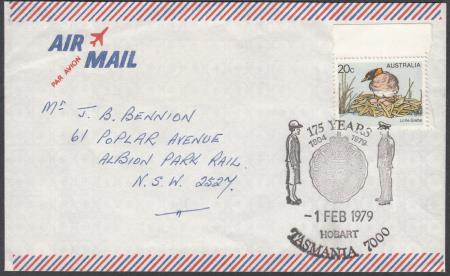 AIR MAIL
PAR AVION
20c AUSTRALIA
Little Grebe
Mr J. B. BENNION
61 POPLAR AVENUE
ALBION PARK RAIL.
N.S.W. 2527.
175 YEARS
1804 1979
-1 FEB 1979
HOBART
TASMANIA 7000